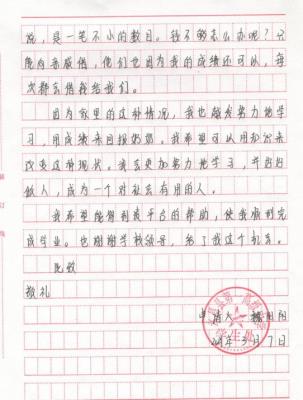 说，是一笔不小的数目。钱不够怎么办呢？只
能向亲戚借，他们也因为我的成绩还可以，每
次都会借钱给我们。
因为家里的这种情况，我也越发努力地学
习，用成绩来回报奶奶。我希望可以用知识来
改变这种现状。我会更加努力地学习，并好好
做人，成为一个对社会有用的人。
我希望能得到贵平台的帮助，使我顺利完
成学业。也谢谢学校领导，给了我这个机会。
此致
敬礼
申请人
阳
3月7日
学生处